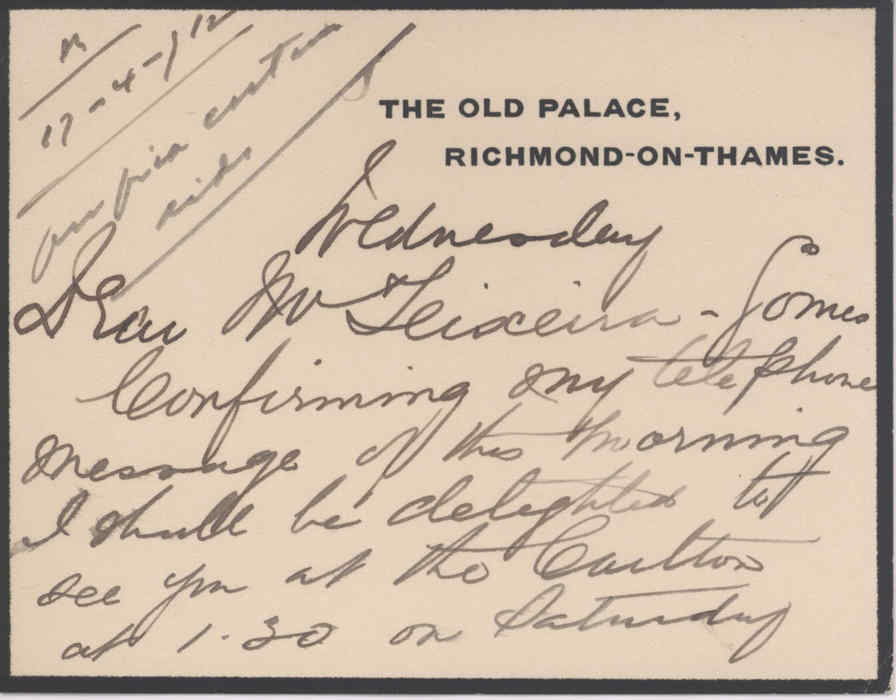 17-4-912
THE OLD PALACE,
RICHMOND-ON-THAMES.
Wednesday
Dear Mr Teixeira-Gomes
Confirming my telephone
message of this morning
I shall be delighted to
see you at the Carlton
at 1.30 on Saturday